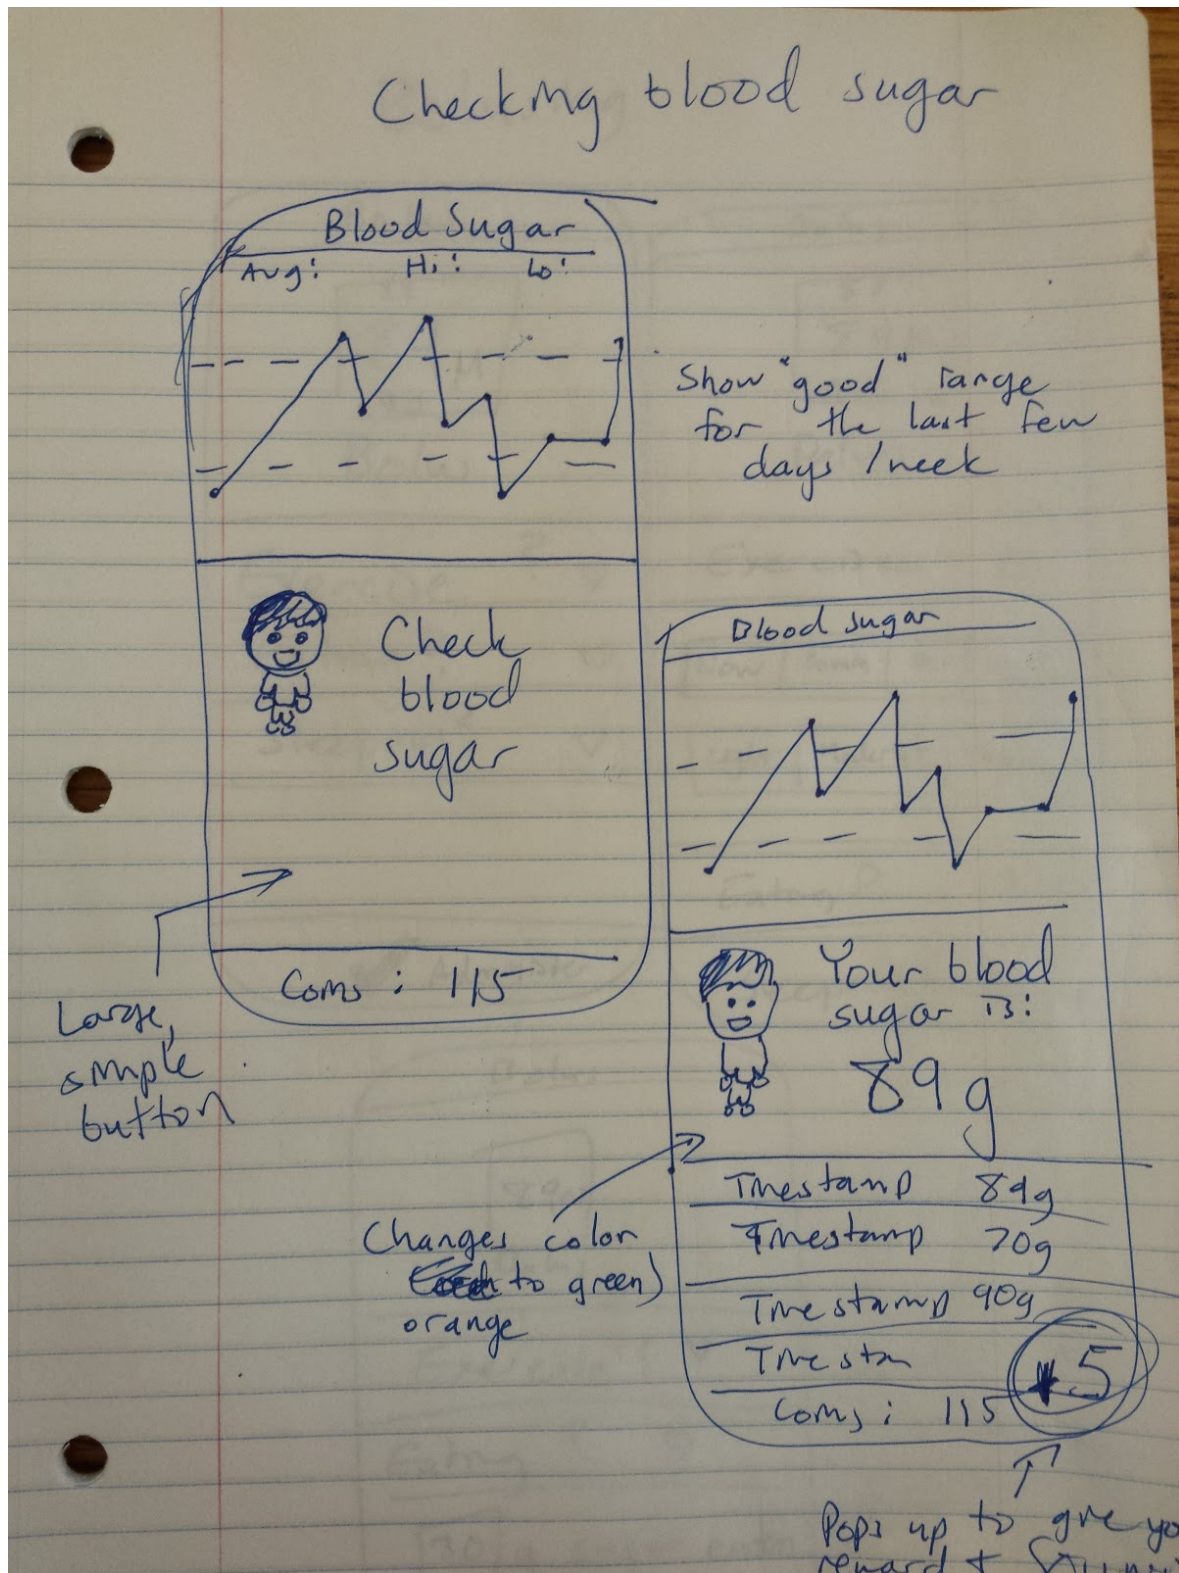 Checking blood sugar
Blood Sugar
Avg: Hi: Lo:
Show "good" range
for the last few
days / week
Check
blood
sugar
Coins: 115
Large,
simple
button
Blood sugar
Your blood
sugar is:
89g
Timestamp 89g
Timestamp 70g
Timestamp 90g
Timestam
Coins: 115
5
Changes color
to green)
orange
Pops up to give yo
reward +